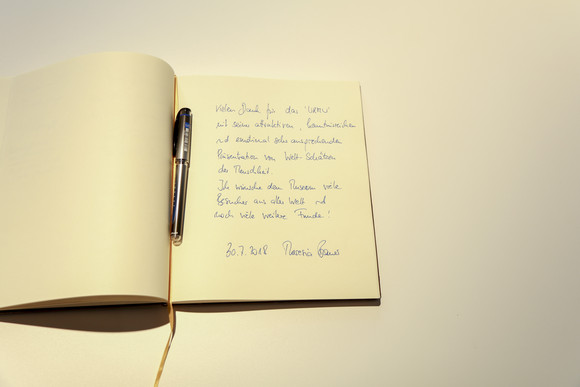 Vielen Dank für das
mit seiner attraktiven, kenntnisreichen
und emotional sehr ansprechenden
Präsentation von Welt-Schätzen
der Menschheit
Ich wünsche dem Museum viele
Besucher aus aller Welt und
noch viele weitere Freunde!
30.7.2018